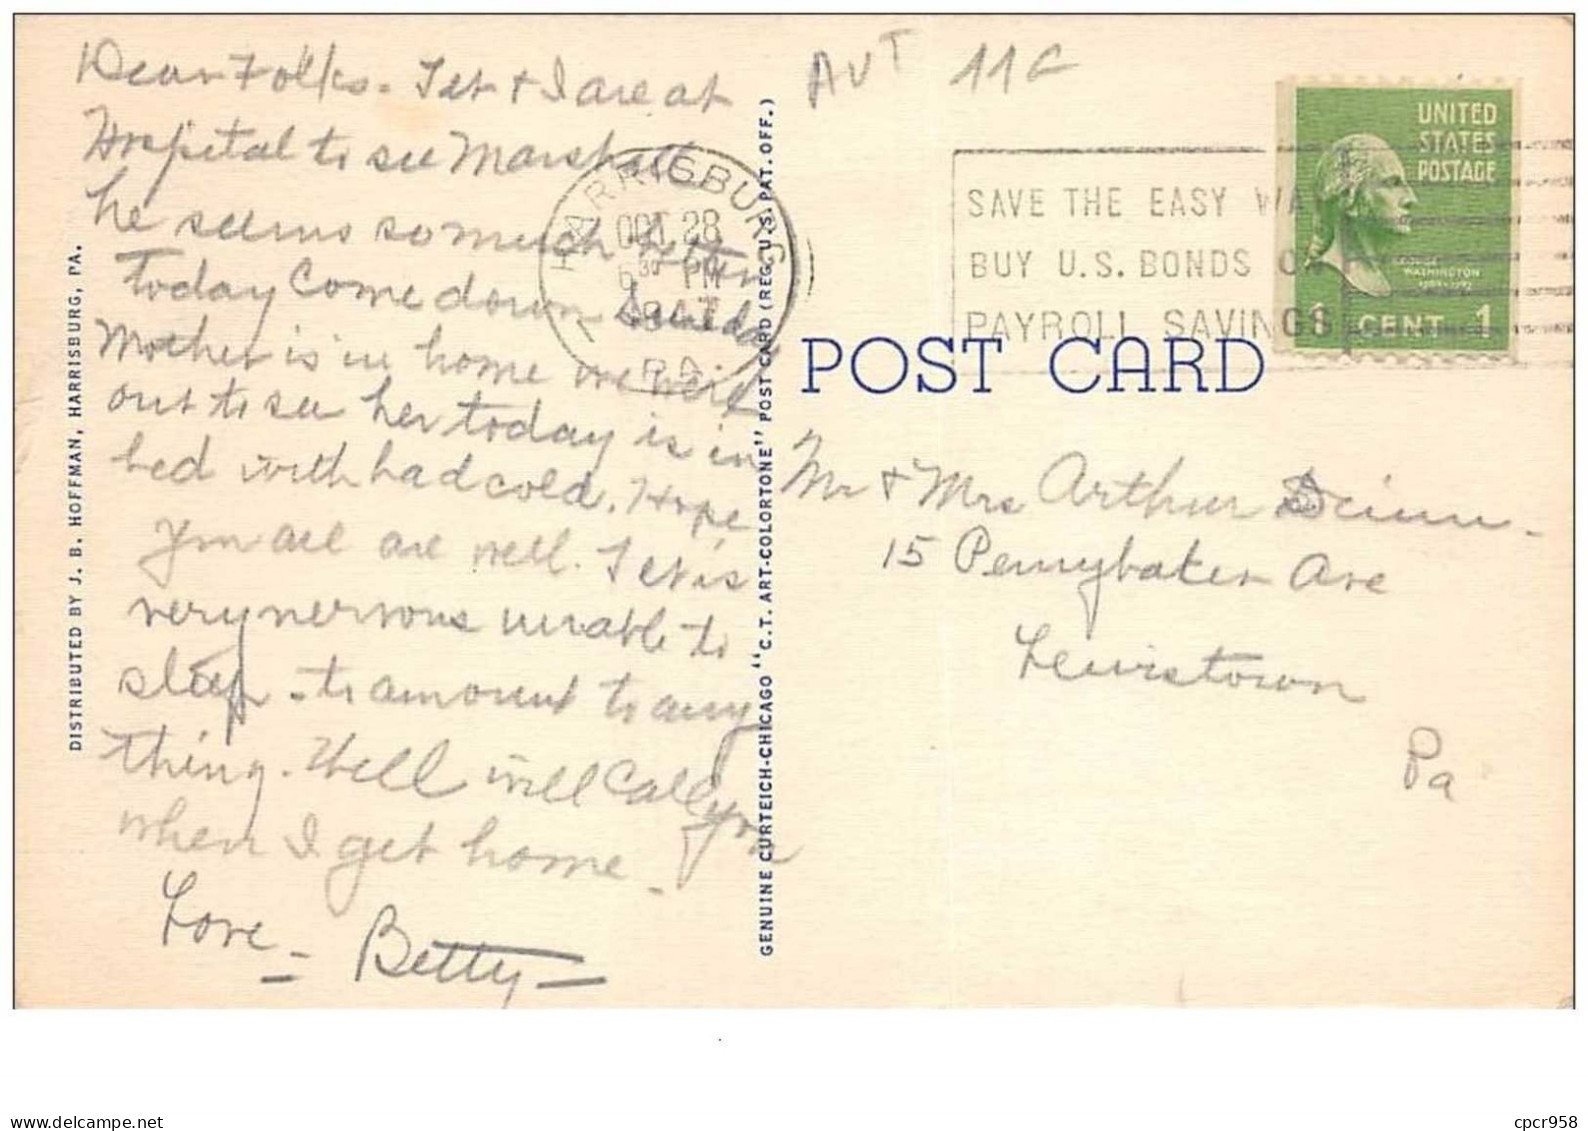 Dear Folks - Tet & I are at
Hospital to see Marshall
he seems so much better
today Come down Sunday
Mother is in home we went
out to see her today is in
bed with bad cold. Hope
you all are well. Tet is
very nervous unable to
sleep - to amount to any
thing. Well will Call you
when I get home -
Love - Betty -
DISTRIBUTED BY J. B. HOFFMAN, HARRISBURG, PA.
GENUINE CURTEICH-CHICAGO "C.T. ART-COLORTONE" POST CARD (REG. U.S. PAT. OFF.)
AUT 11C
HARRISBURG
OCT 28
6 30 PM
1947
PA
SAVE THE EASY WAY
BUY U.S. BONDS ON
PAYROLL SAVINGS
UNITED
STATES
POSTAGE
GEORGE
WASHINGTON
1 CENT 1
POST CARD
Mr & Mrs Arthur
15 Pennybaker Ave
Lewistown
Pa
cpcr958